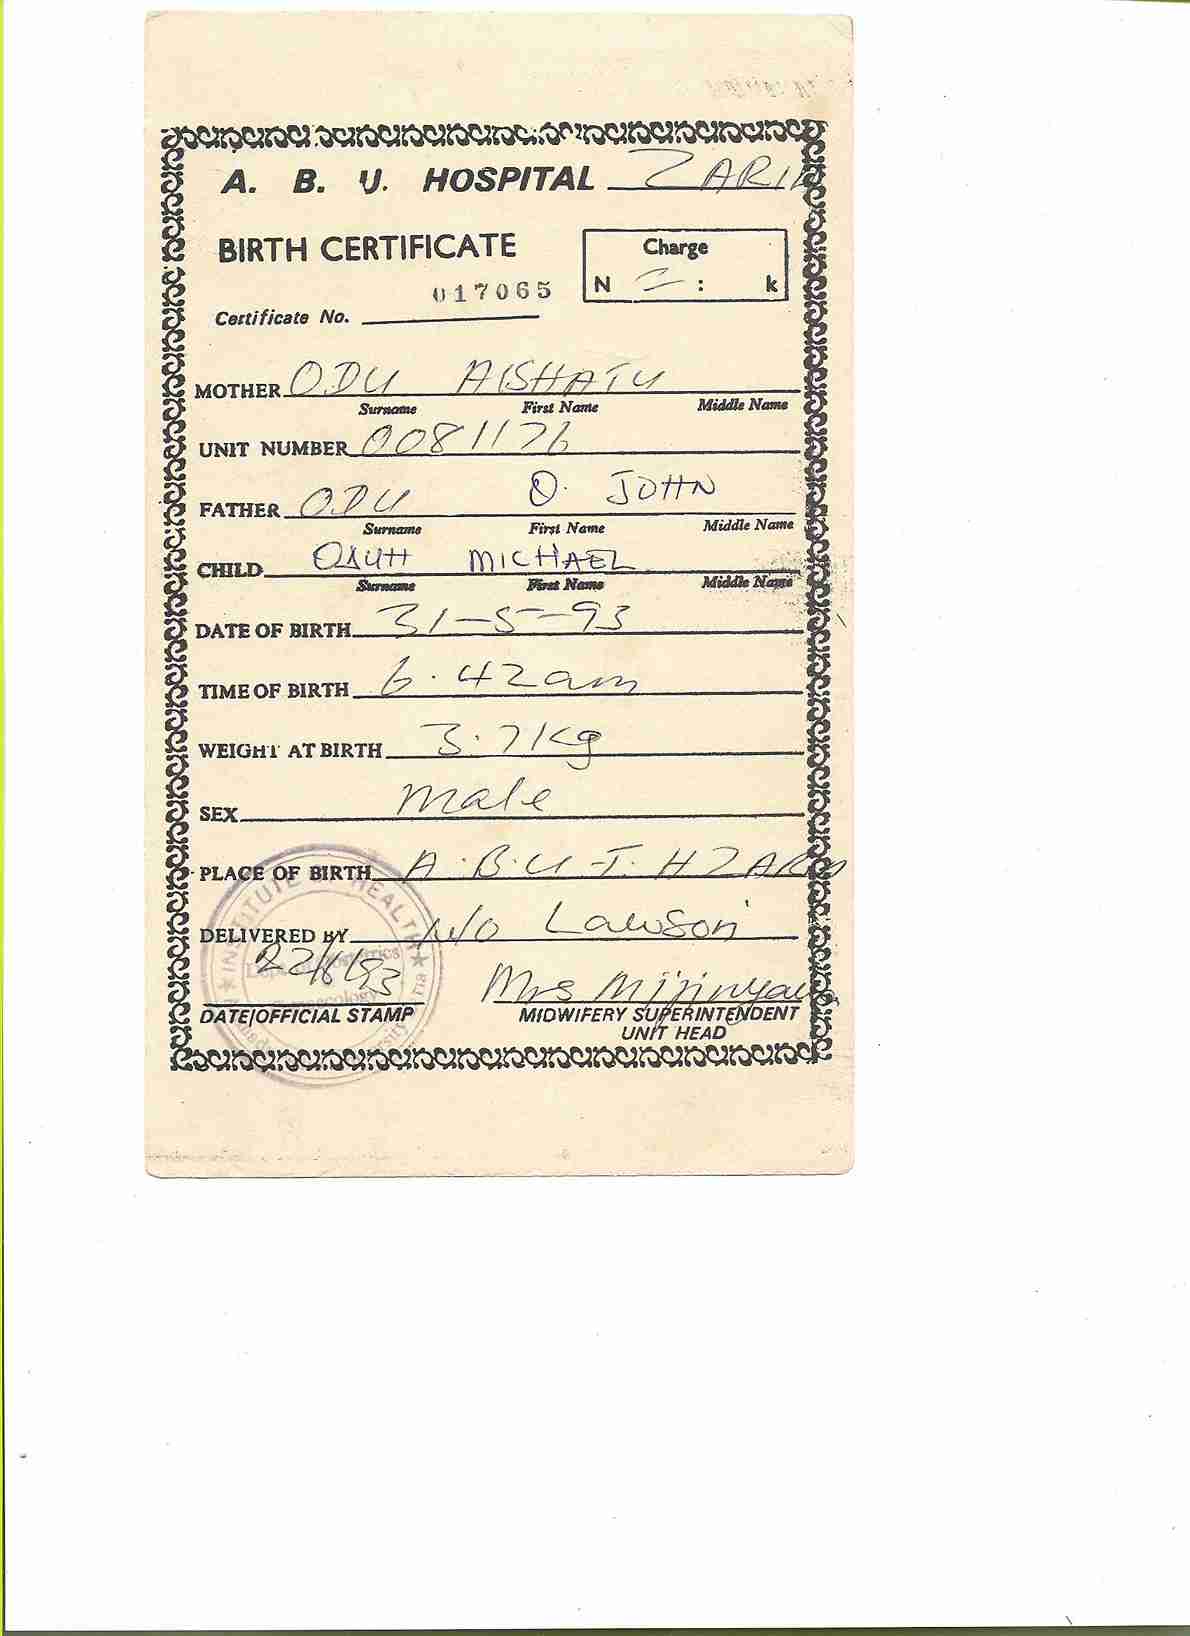 A. B. U. HOSPITAL ZARIA
BIRTH CERTIFICATE
Charge
N = : k
017065
Certificate No.
MOTHER ODU AISHATU
Surname First Name Middle Name
UNIT NUMBER 0081176
FATHER ODU O. JOHN
Surname First Name Middle Name
CHILD MICHAEL
Surname First Name Middle Name
DATE OF BIRTH 31-5-93
TIME OF BIRTH 6.42am
WEIGHT AT BIRTH 3.7kg
SEX male
PLACE OF BIRTH A.B.U.T.H ZARIA
DELIVERED BY Lawson
INSTITUTE OF HEALTH
Dept. of Obstetrics
Gynaecology
22/6/93 Mrs Mijinyawa
DATE/OFFICIAL STAMP MIDWIFERY SUPERINTENDENT
UNIT HEAD